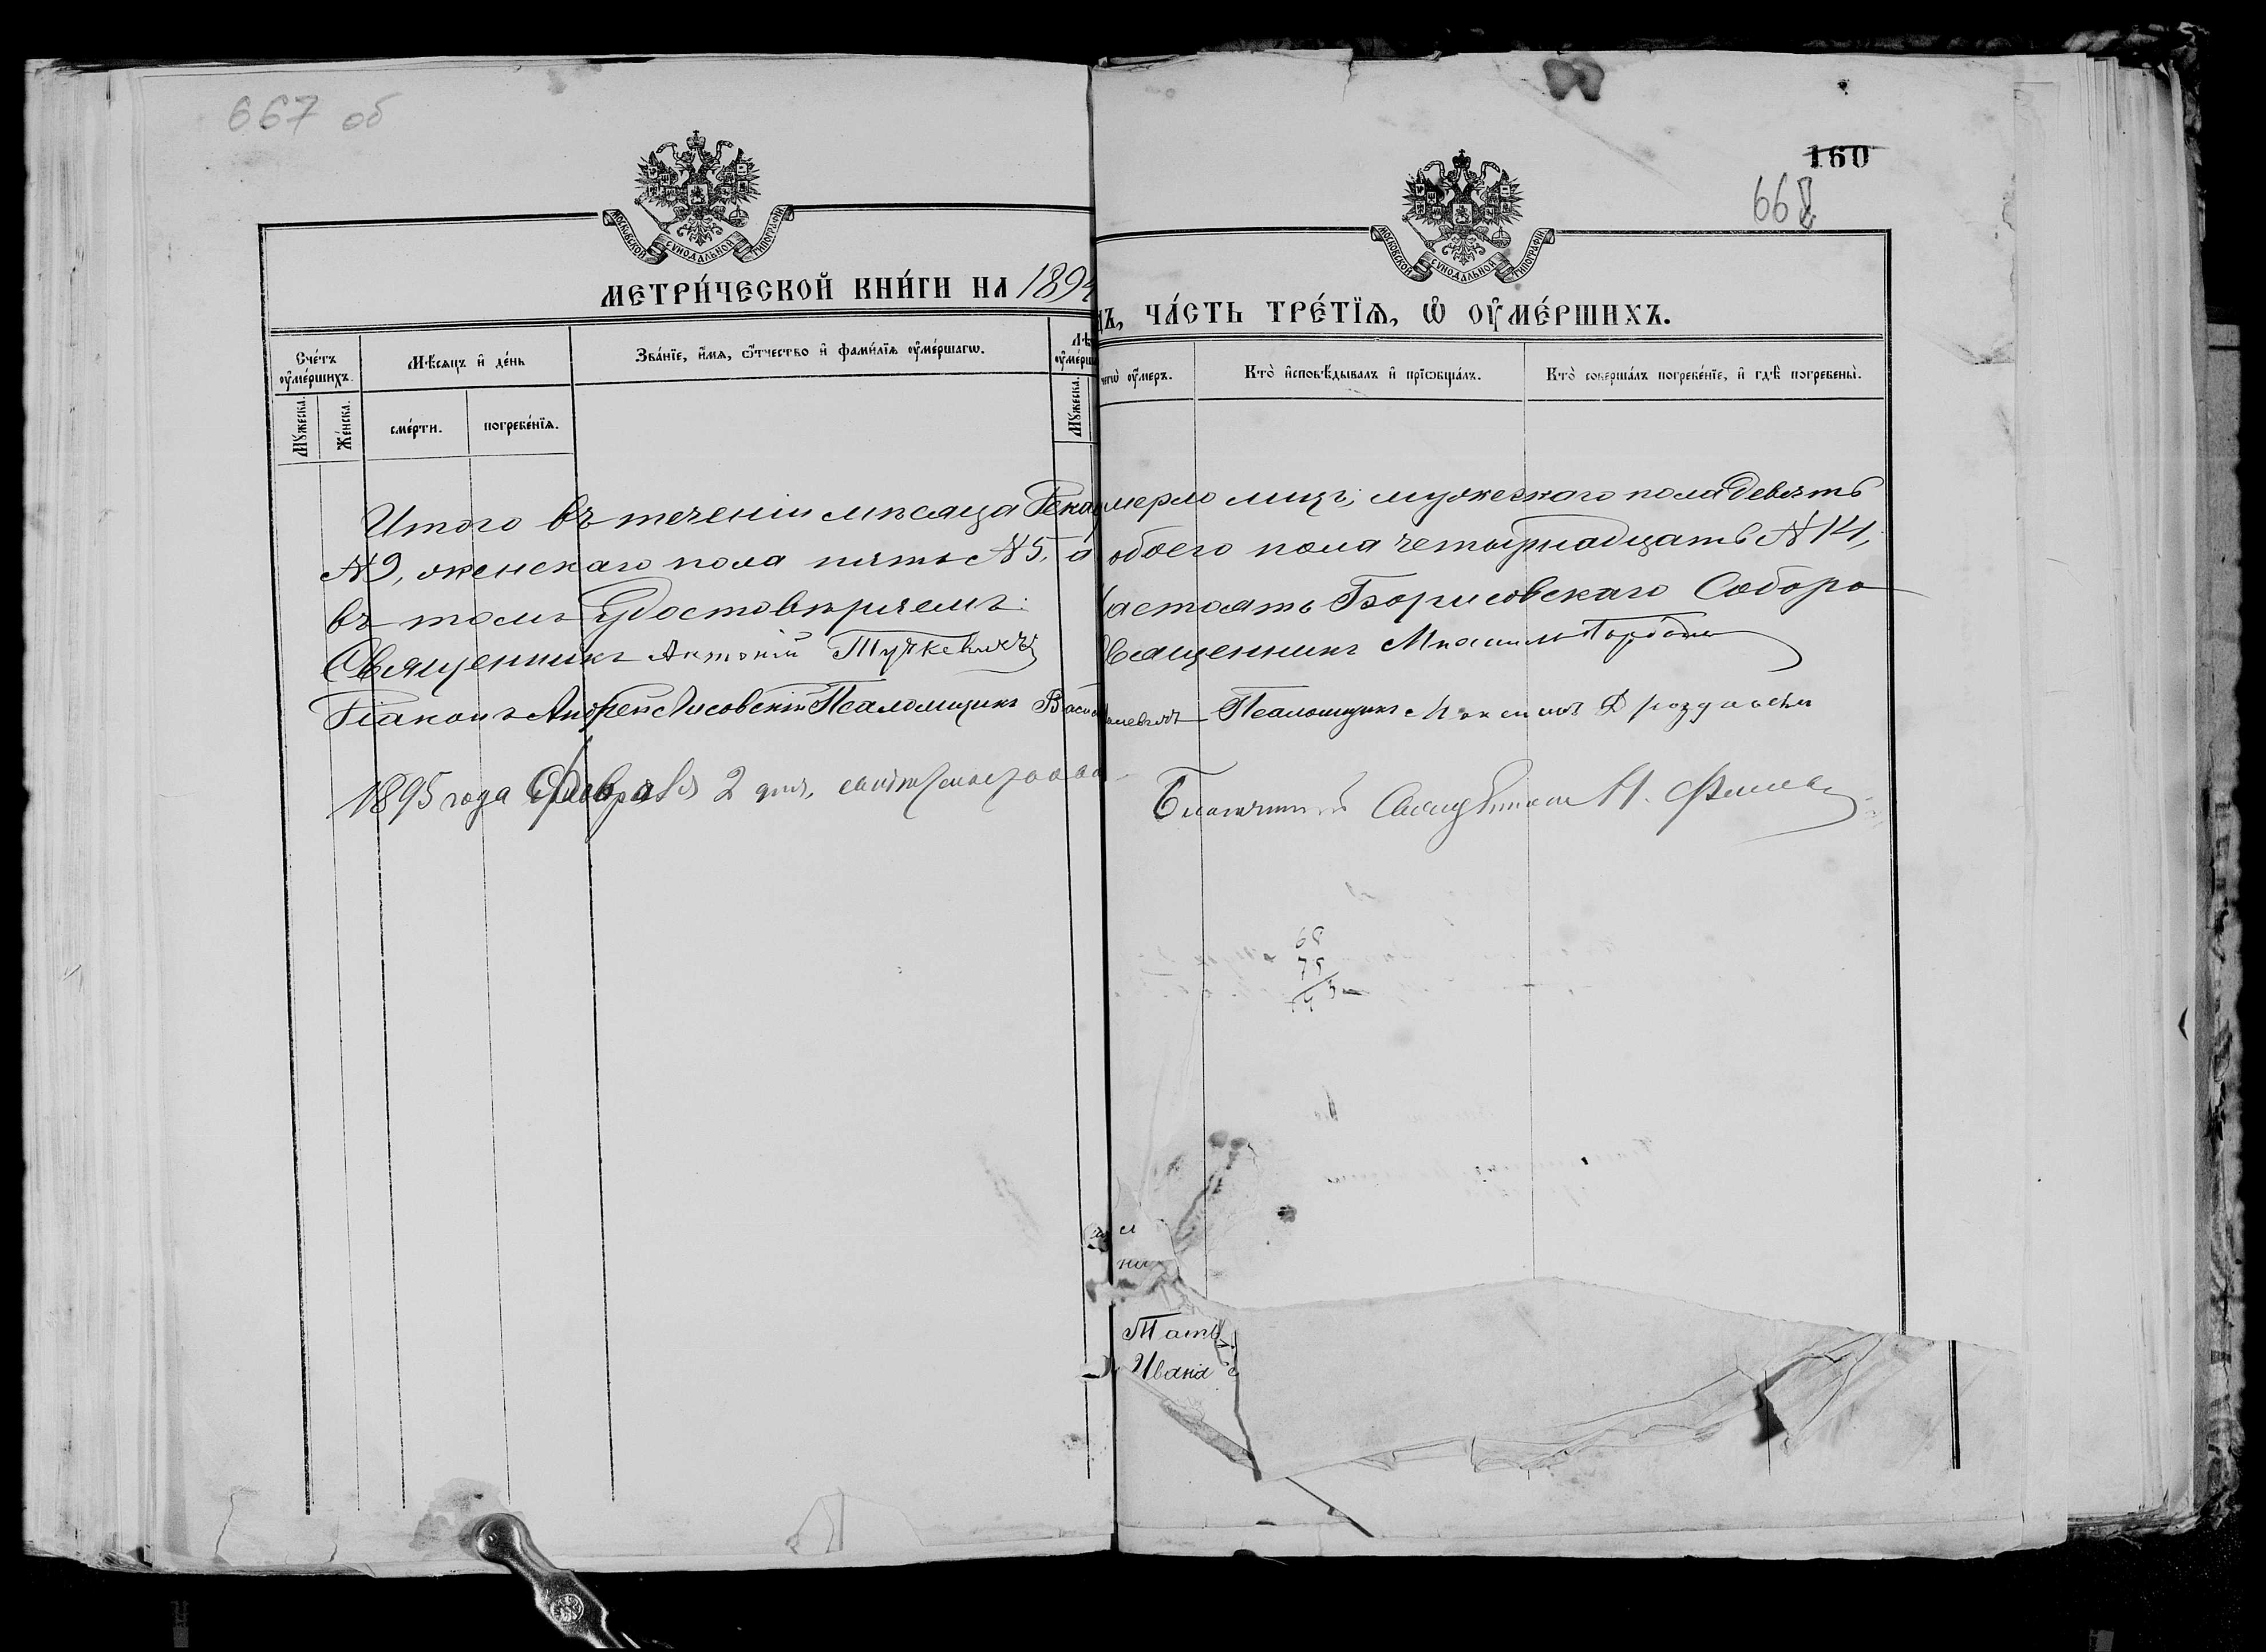 667 об
160
668
МОСКОВСКОЙ СѴНОДАЛЬНОЙ ТИПОГРАФІИ
МОСКОВСКОЙ СѴНОДАЛЬНОЙ ТИПОГРАФІИ
МЕТРИ́ЧЕСКОЙ КНИ́ГИ НА 1894
ЧА́СТЬ ТРЕ́ТІѦ, Ѿ ОУ҆МЕ́РШИХЪ.
Сче́тъ оу҆ме́ршихъ.
Мѣ́сяцъ и҆ де́нь
Зва́нїе, и҆́мѧ, ѻ҆́тчество и҆ фами́лїѧ оу҆ме́ршагѡ.
Лѣ
оу҆ме́рш
чегѡ̀ оу҆́меръ.
Кто̀ и҆сповѣ́дывалъ и҆ прїѡбща́лъ.
Кто̀ соверша́лъ погребе́нїе, и҆ гдѣ̀ погребены̀.
Мꙋ́жеска.
Же́нска.
сме́рти.
погребе́нїѧ.
Мꙋ́жеска.
Итого въ теченіи мѣсяца Дека умерло лицъ, мужескаго пола девять
№9, женскаго пола пять №5, а обоего пола четырнадцать №14,
въ томъ удостовѣряемъ: Настоять Борисовскаго Соборо
Священникъ Антоній Тучкевичъ Священникъ
Діаконъ Андрей Лисовскій Псаломщикъ Васи Псаломщикъ Максимъ
1895 года Февраля 2 дня, свидѣтельствовалъ Благочинный Священникъ
68
75
Тать
Ивана